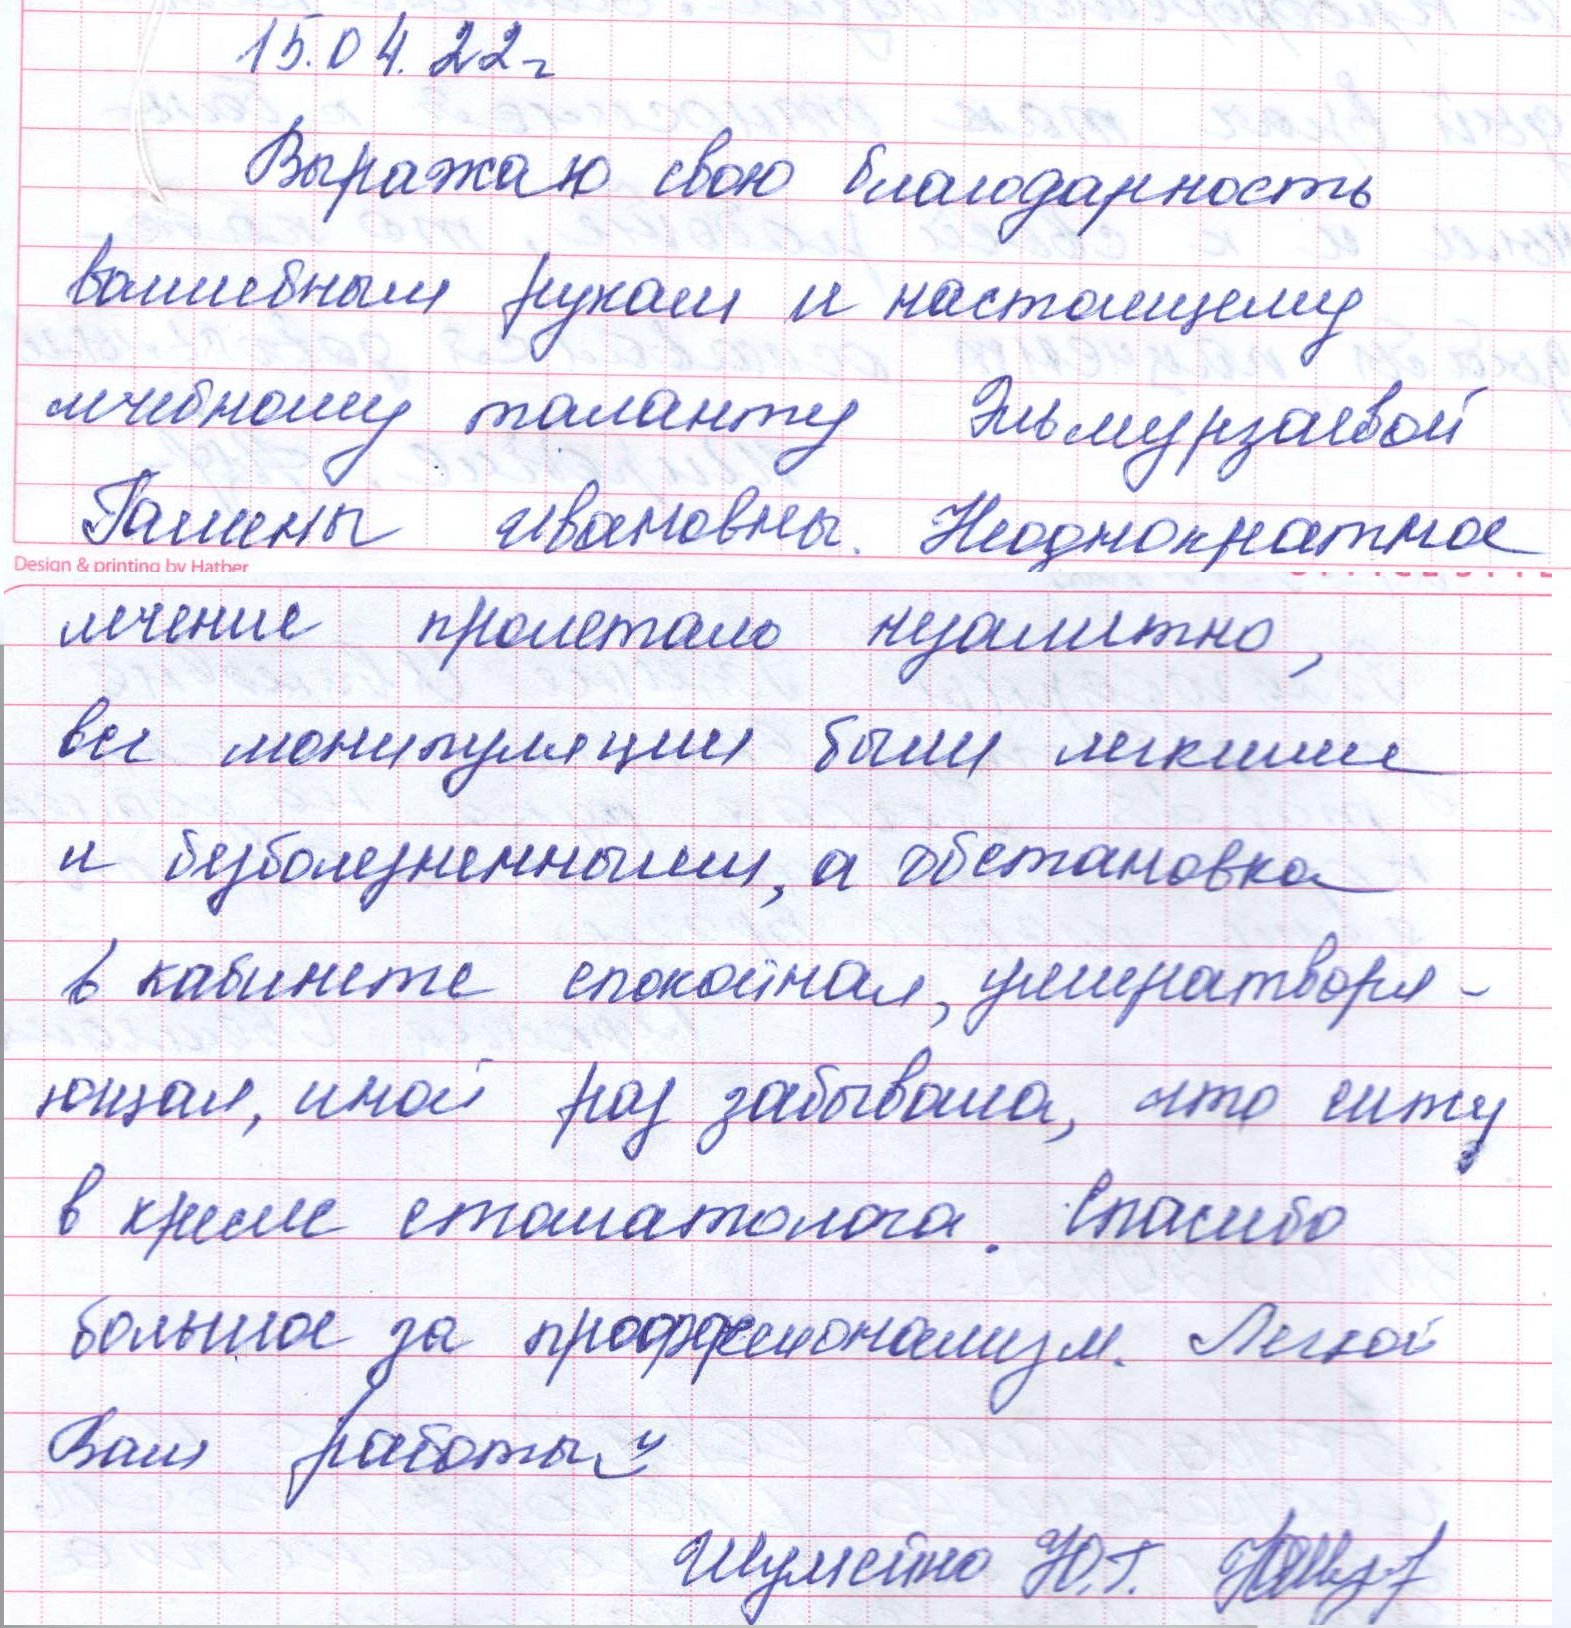 15.04.22г
Выражаю свою благодарность
волшебным рукам и настоящему
лечебному таланту Эльмурзаевой
Ивановны. Неоднократное
Design & printing by Hatber
лечение пролетало незаметно,
все манипуляции были легкими
и безболезненными, а обстановка
в кабинете спокойная, умиратворя-
ющая, иной раз забывала, что сижу
в кресле стоматолога. Спасибо
большое за профессионализм. Легкой
Вам работы
Ю.Г.